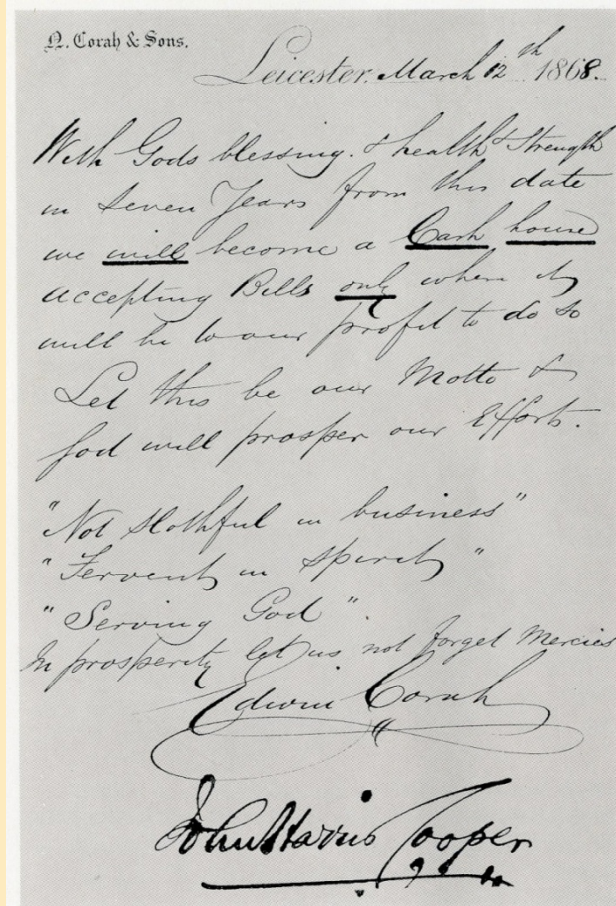 N. Corah & Sons.
Leicester. March 12th 1868.
With Gods blessing. & health & Strength
in Seven Years from this date
we will become a Cash house
accepting Bills only when it
will be to our profit to do so
Let this be our Motto &
God will prosper our Efforts.
"Not Slothful in business"
"Fervent in Spirit"
"Serving God".
In prosperity let us not forget Mercies
Edwin Corah
John Harris Cooper